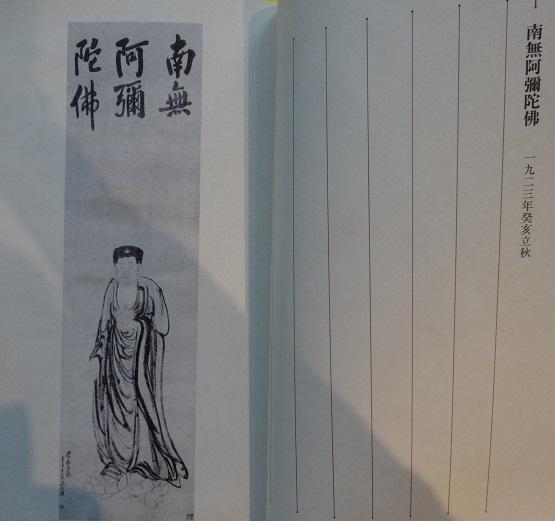 南無
阿彌
陀佛
1 南無阿彌陀佛
一九二三年癸亥立秋